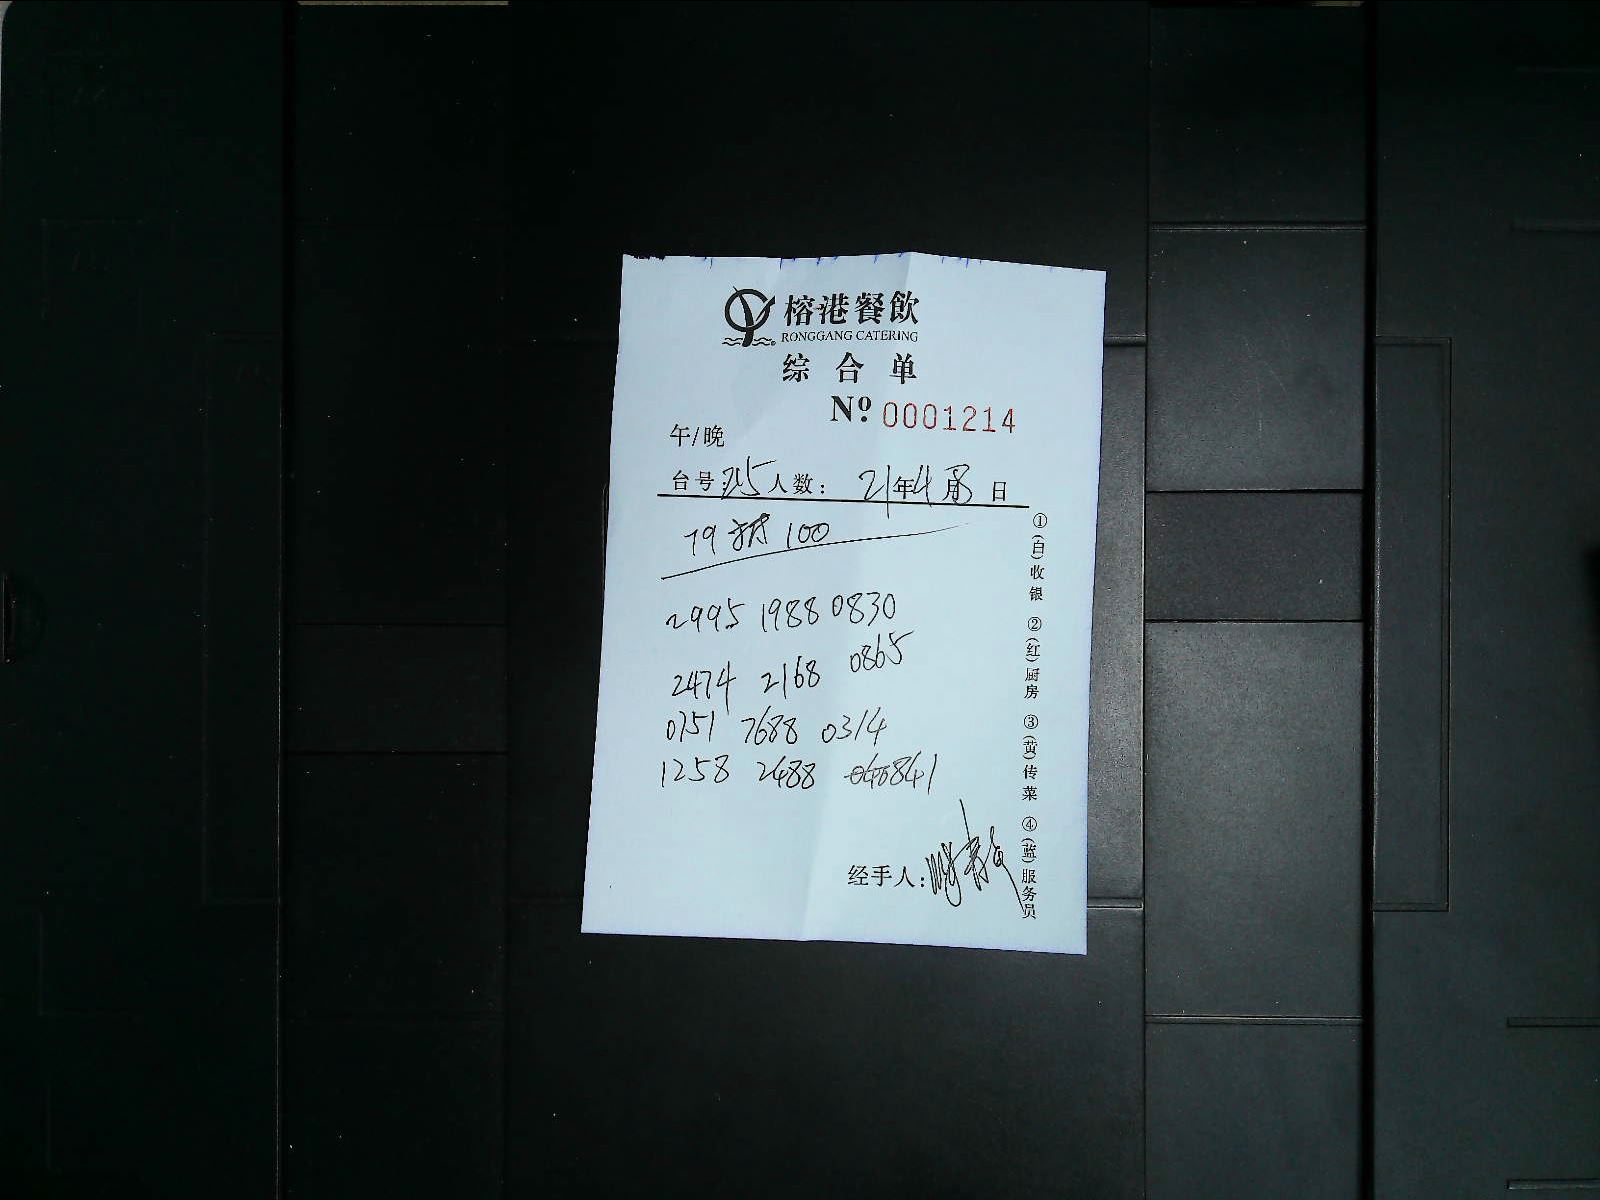 榕港餐飲
RONGGANG CATERING
综合单
Nº 0001214
午/晚
台号:215人数: 21年4月8日
79 100
2995 1988 0830
2474 2168 0865
0751 7688 0314
1258 2488 0841
经手人:
①(白)收银 ②(红)厨房 ③(黄)传菜 ④(蓝)服务员